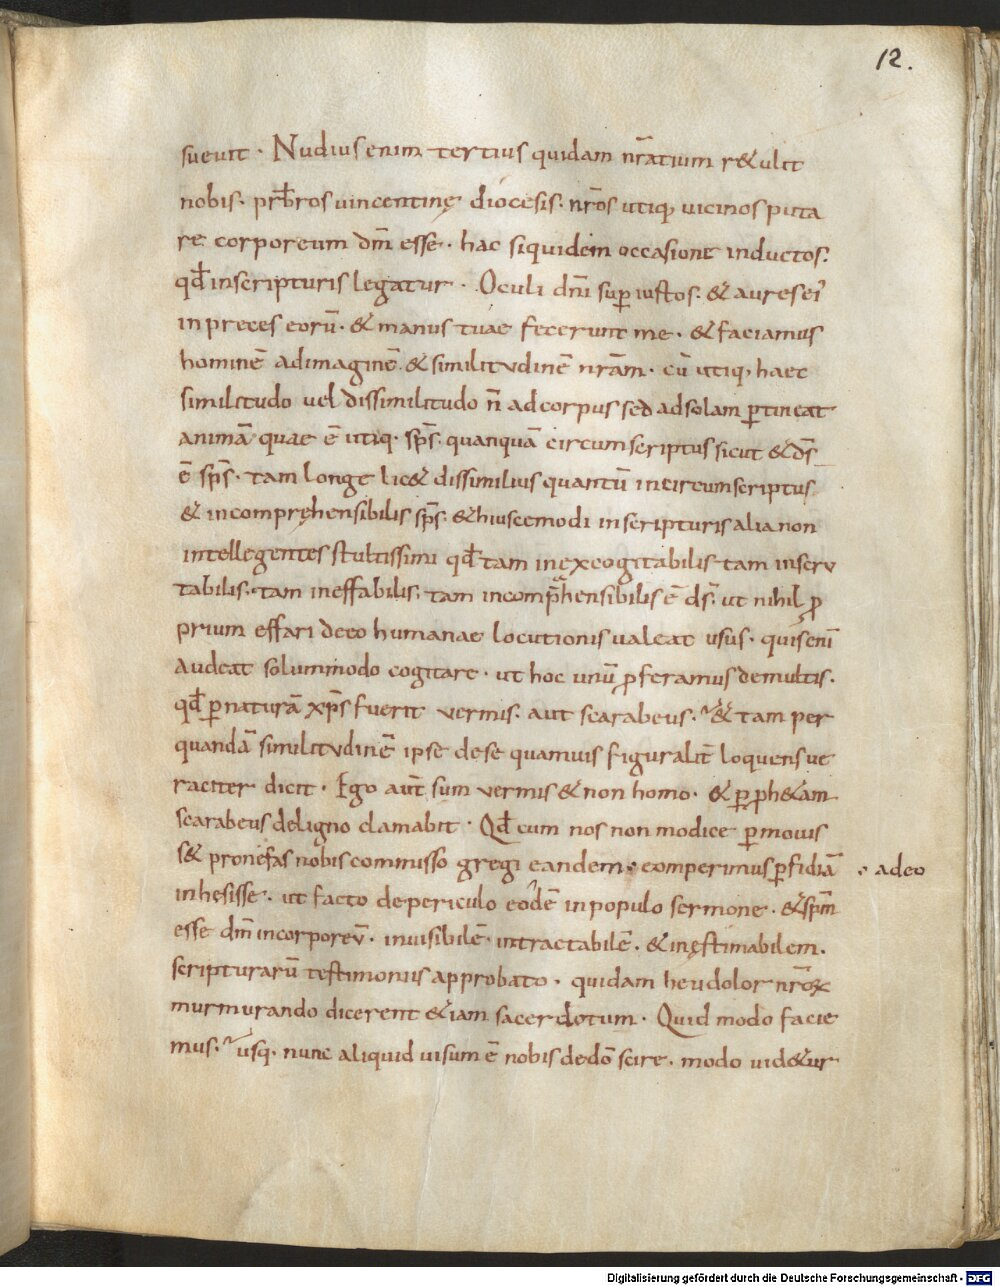 12.
sueuit · Nudius enim tertius quidam nr̄atium r&ulit
nobis · prb̄ros uincentinę diocesis · nr̄os utiq; uicinos puta
re corporeum dn̄m esse · hac siquidem occasione inductos ·
qđ inscripturis legatur · Oculi dn̄i sup̱ iustos · & aures ei'
in preces eorū · & manus tuae fecerunt me · & faciamus
hominē adimaginē & similitudinē nr̄am · cū utiq; haec
similitudo uel dissimilitudo n̄ ad corpus sed ad solam p̱tineat
animā quae ē utiq; · sp̄s · quanquā circumscriptus sicut & ds̄
ē sp̄s · tam longe lic& dissimilius quantū incircumscriptus
& incompręhensibilis sp̄s · & huiuscemodi in scripturis alia non
intellegentes stultissimi qđ tam inexcogitabilis tam inscru
tabilis · tam ineffabilis · tam incomp̄hensibilis ē ds̄ · ut nihil ꝓ
prium effari deeo humanae locutionis ualeat usus · quis eni
audeat solummodo cogitare · ut hoc unū ꝓferamus demultis ·
qđ p̱ naturā xp̄s fuerit vermis · aut scarabeus · & tam per
quandā similitudinē ipse dese quamuis figuralit̄ loquens ue
raciter dicit · Ego aut̄ sum vermis & non homo · & p̱ ꝓph&am
scarabeus deligno clamabit · Qđ cum nos non modice p̱mouis
s& pronefas nobis commisso gregi eandem · comperimus p̱fidiā · adeo
inhesisse · ut facto depericulo eodē in populo sermone · & sp̄m
esse dn̄m incorporeū · inuisibilē · intractabilē · & inęstimabilem ·
scripturarū testimoniis approbato · quidam heu dolor nr̄oꝝ
murmurando dicerent &iam sacerdotum · Quid modo facie
mus · usq; nunc aliquid uisum ē nobis dedō scire · modo uid&ur
Digitalisierung gefördert durch die Deutsche Forschungsgemeinschaft · DFG